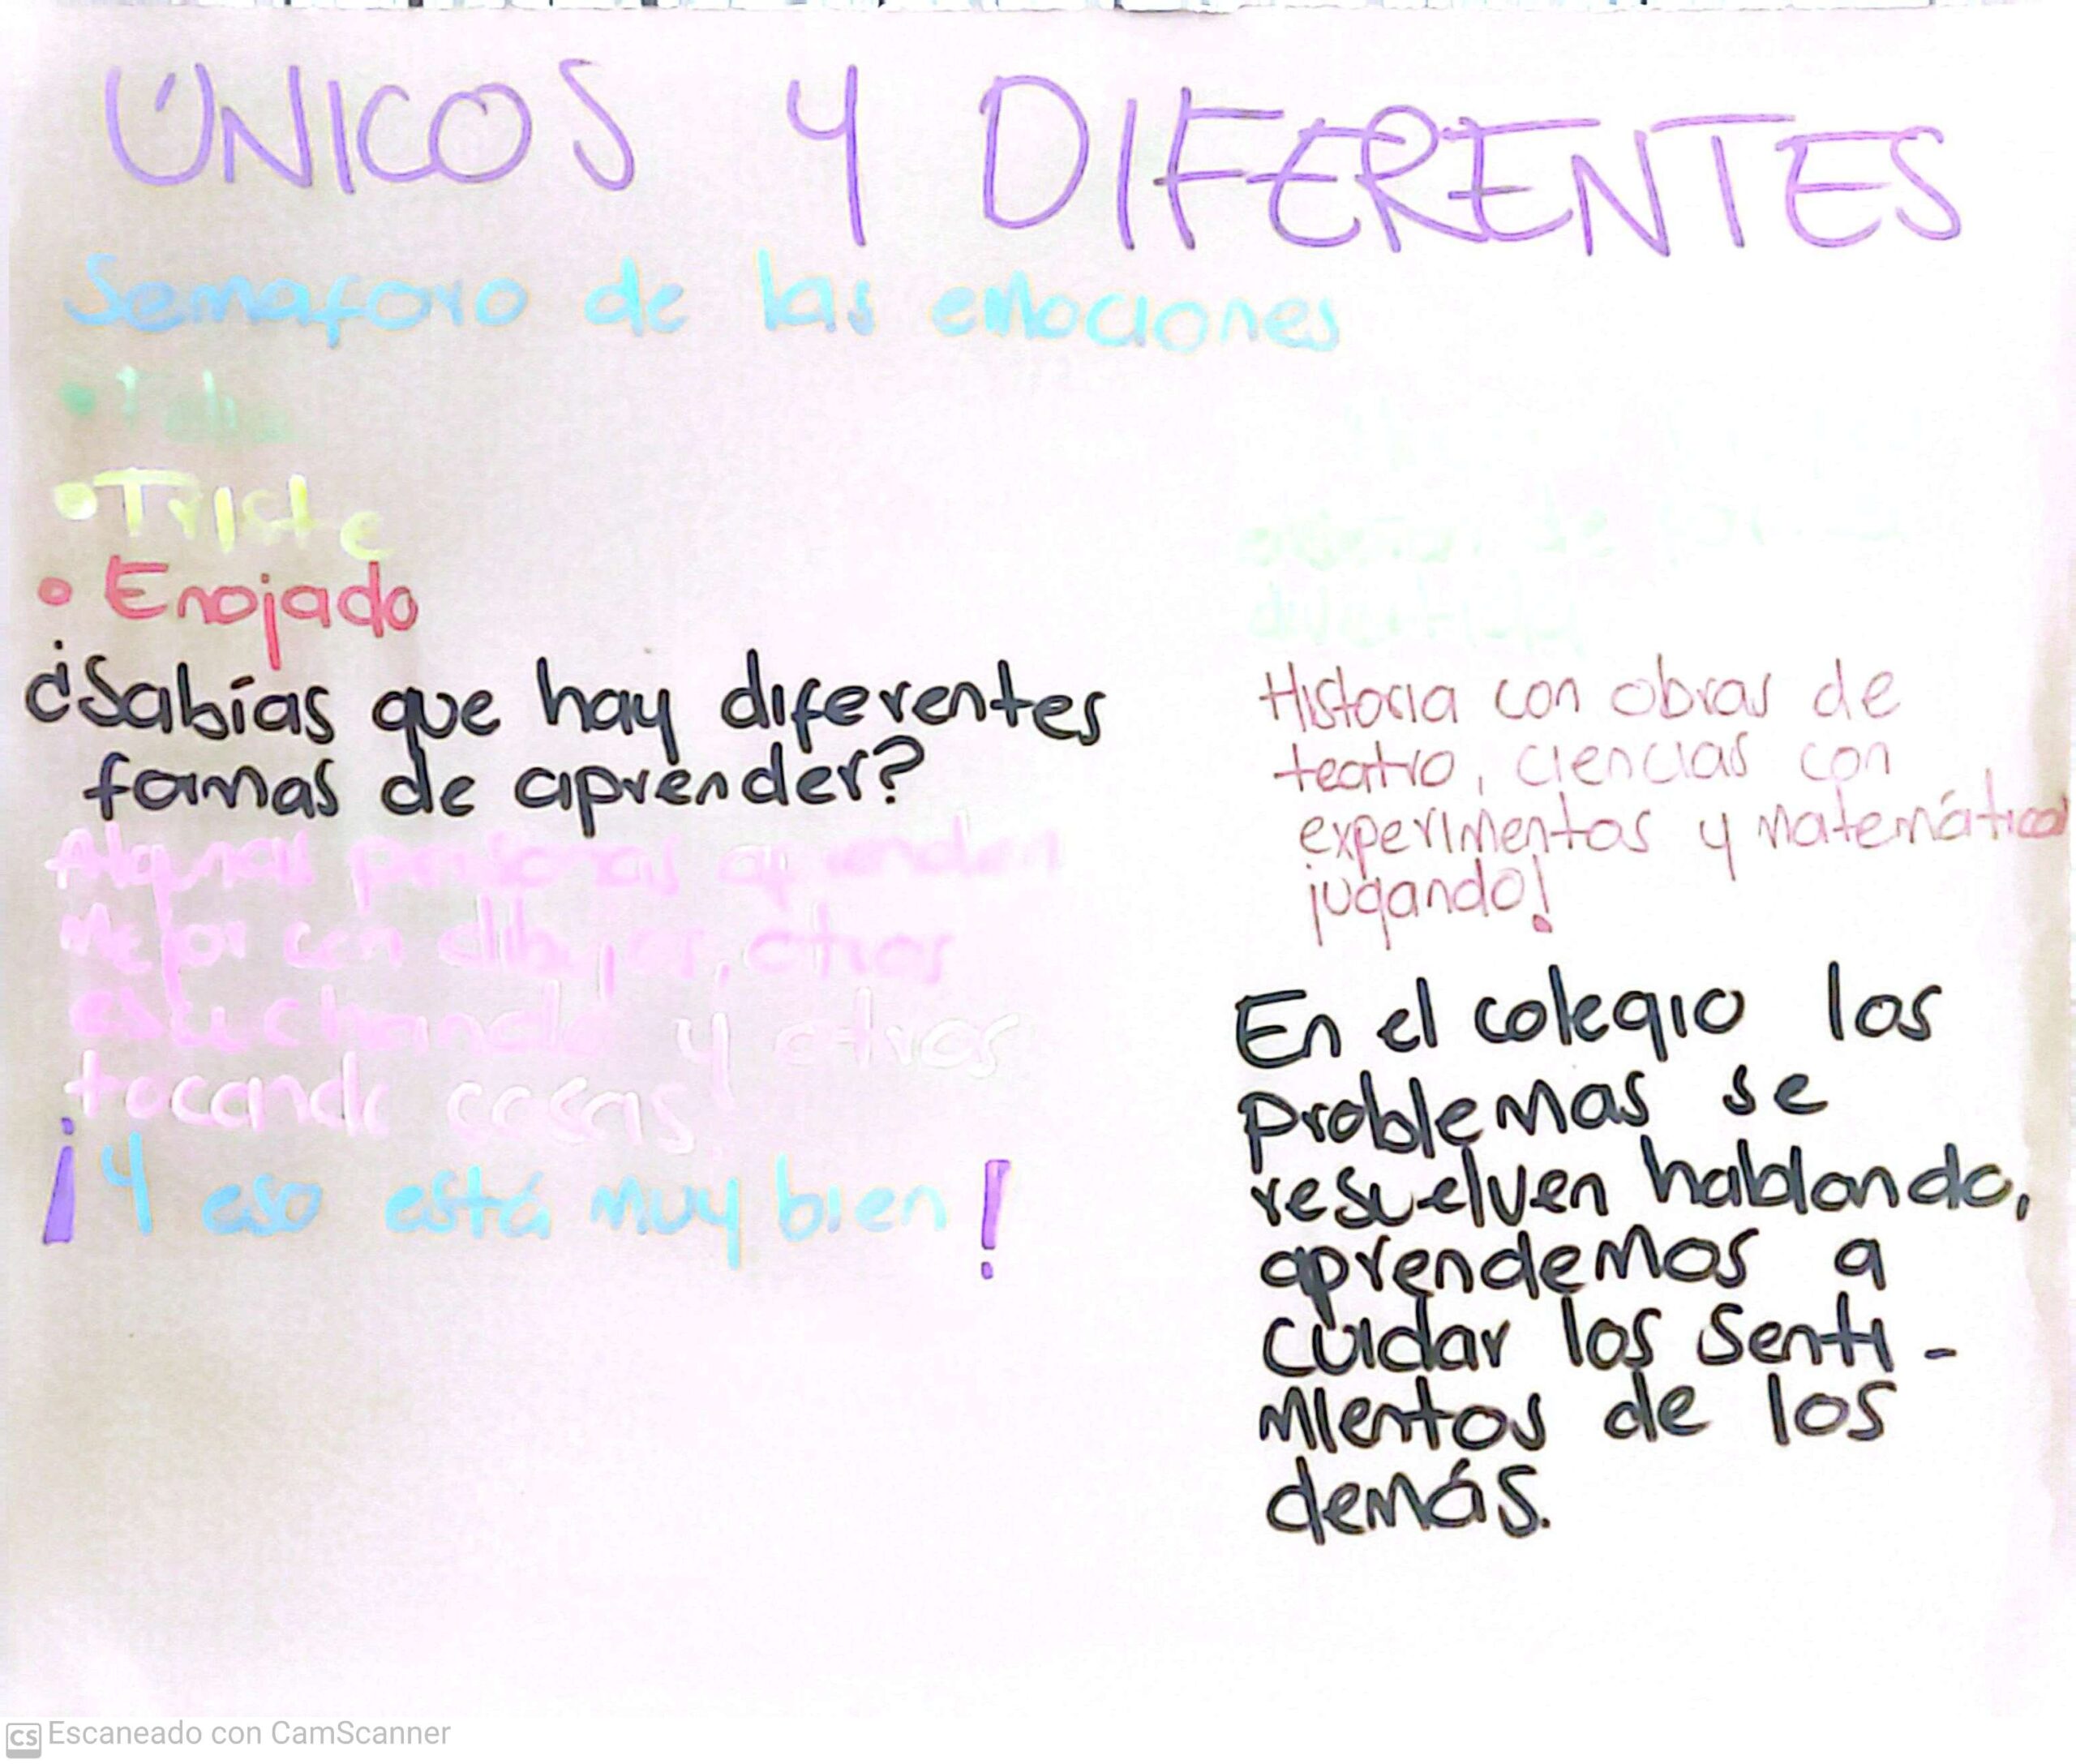 ÚNICOS Y DIFERENTES
Semaforo de las emociones
• Triste
• Enojado
¿Sabías que hay diferentes
formas de aprender?
Algunas personas aprenden
mejor con dibujos, otros
escuchando y otros
tocando cosas
¡Y eso está muy bien!
divertida
Historia con obras de
teatro, ciencias con
experimentos y matemáticas
jugando!
En el colegio los
problemas se
resuelven hablando,
aprendemos a
cuidar los senti-
mientos de los
demás.
CS Escaneado con CamScanner